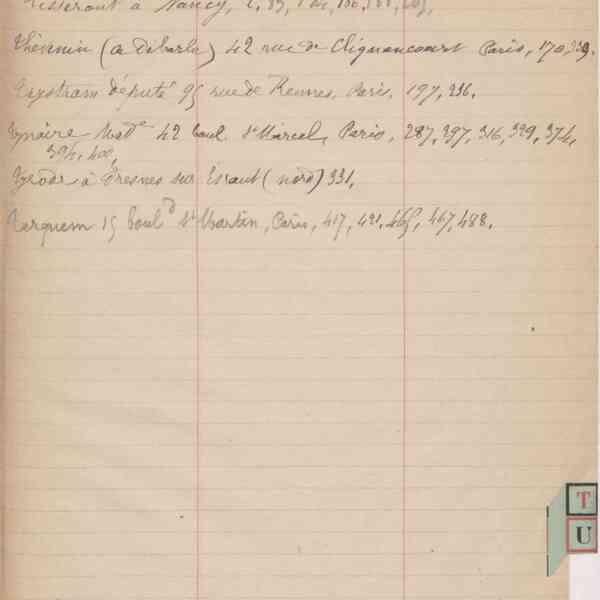 Tisseront à Nancy, 2, 89,
Thévenin (a Débarle) 42 rue de Clignancourt Paris, 170, 239.
Trystram député 95 rue de Rennes, Paris, 197, 236.
42 boul. St Marcel, Paris, 287, 297, 316, 329, 374,
394, 400,
à Fresnes sur Escaut (nord) 331.
Terquem 15 boul.d St Martin, Paris, 417, 421, 465, 467, 488.
T
U